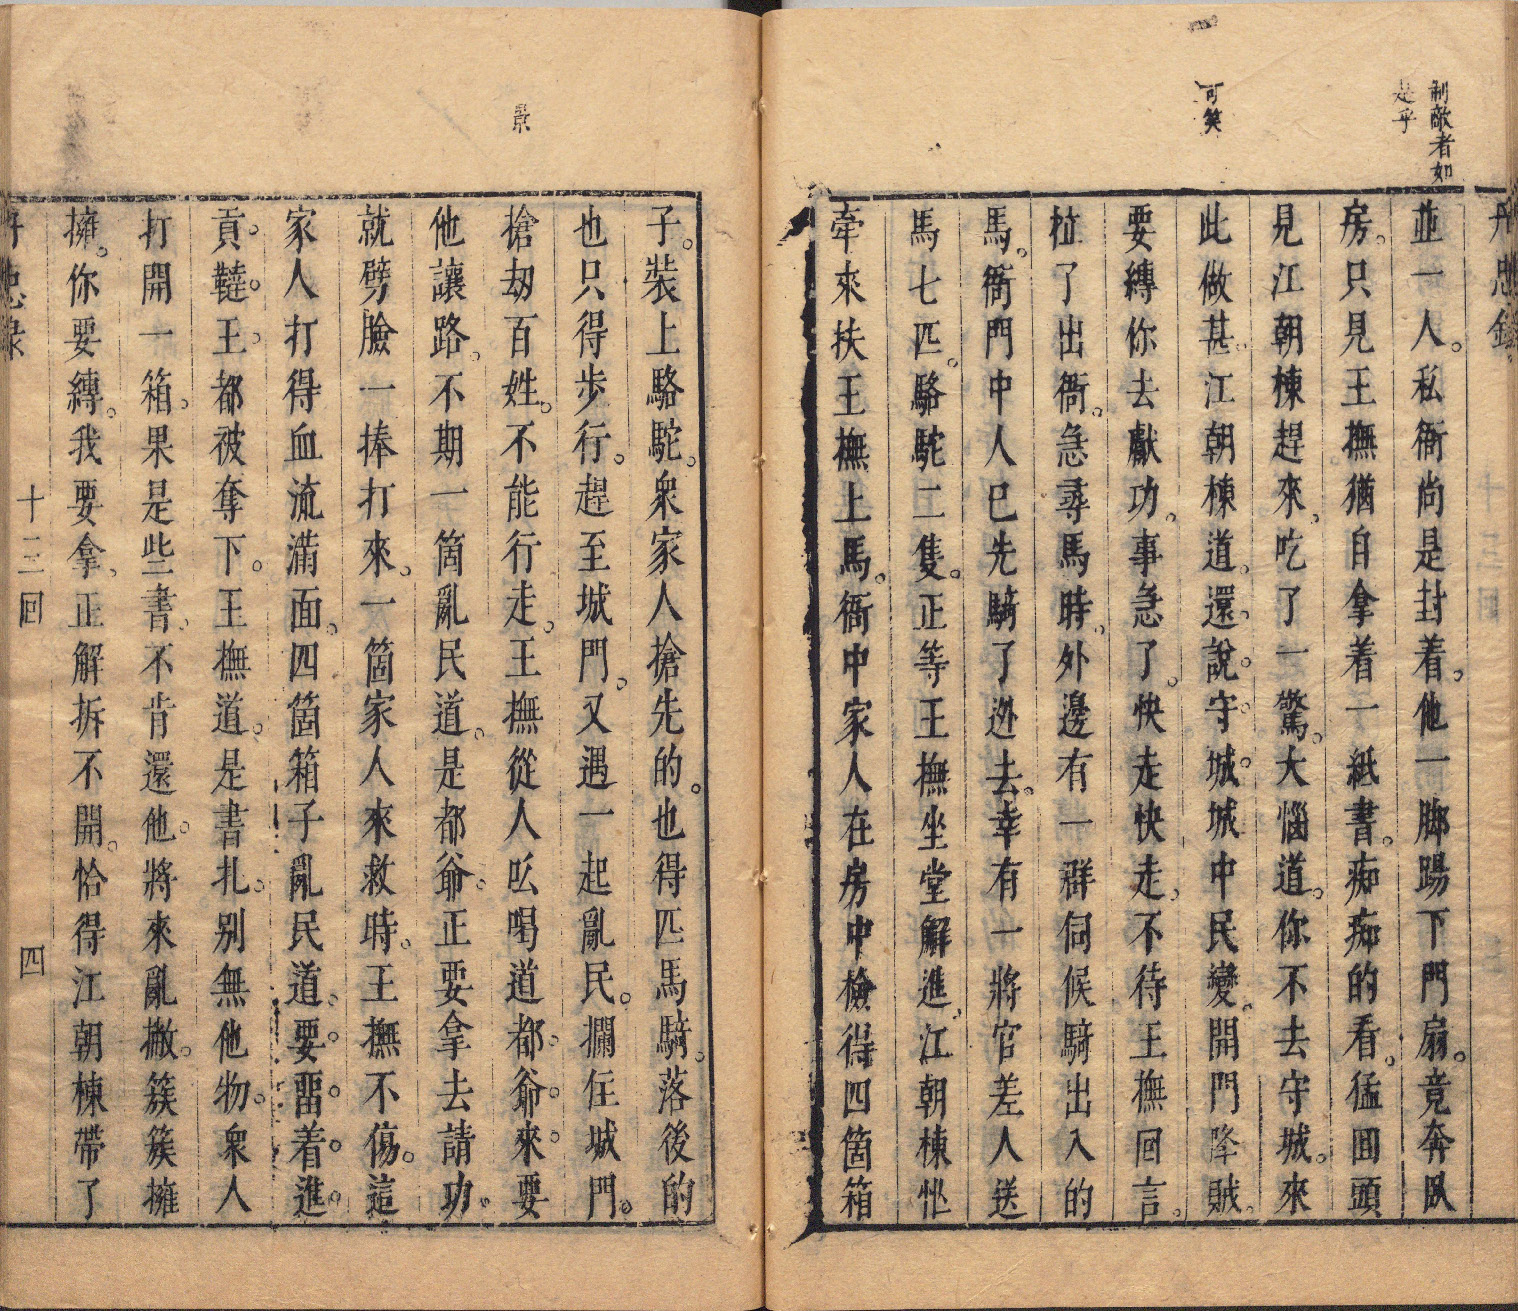 制敵者如
是乎
可笑
丹忠錄
並一人。私衙尚是封着。他一脚踢下門扇。竟奔臥
房。只見王撫猶自拿着一紙書。痴痴的看。猛囬頭
見江朝棟趕來。吃了一驚。大惱道。你不去守城。來
此做甚。江朝棟道。還說守城。城中民變。開門降賊。
要縛你去獻功。事急了。快走快走。不待王撫回言。
扯了出衙。急尋馬時。外邊有一群伺候騎出入的
馬。衙門中人已先騎了逊去。幸有一將官差人送
馬七匹。駱駝二隻。正等王撫坐堂解進。江朝棟忙
牽來扶王撫上馬。衙中家人在房中檢得四箇箱
景
子。裝上駱駝。衆家人搶先的。也得匹馬騎。落後的
也只得步行。趕至城門。又遇一起亂民。攔住城門。
搶刼百姓。不能行走。王撫從人吆喝道。都爺來。要
他讓路。不期一箇亂民道。是都爺。正要拿去請功。
就劈臉一捧打來。一箇家人來救時。王撫不傷。這
家人打得血流滿面。四箇箱子亂民道。要畱着進
貢韃王。都被奪下。王撫道。是書扎。别無他物。衆人
打開一箱。果是些書。不肯還他。將來亂撇。簇簇擁
擁。你要縛。我要拿。正解拆不開。恰得江朝棟帶了
丹忠錄
十三回
四